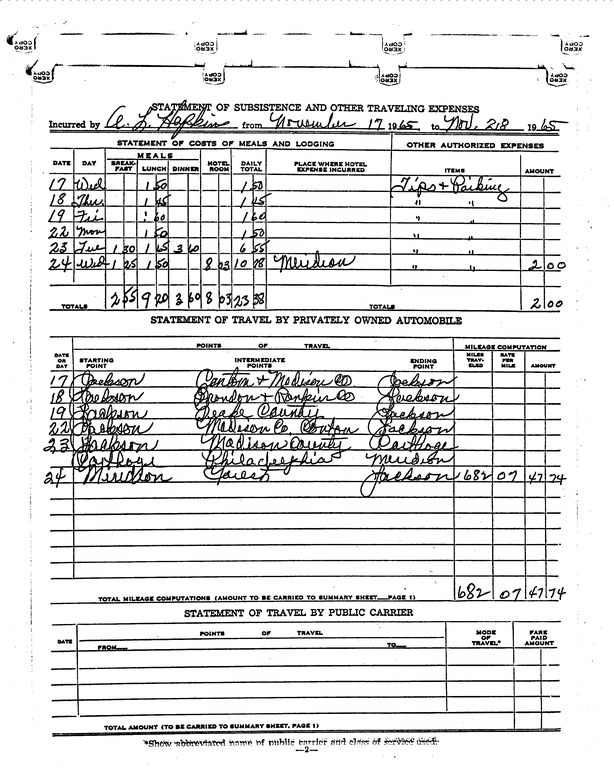 XEROX COPY XEROX COPY XEROX COPY XEROX COPY
XEROX COPY XEROX COPY XEROX COPY XEROX COPY
STATEMENT OF SUBSISTENCE AND OTHER TRAVELING EXPENSES
Incurred by A. L. Hopkins from November 17 1965 to Nov. 28 1965
STATEMENT OF COSTS OF MEALS AND LODGING OTHER AUTHORIZED EXPENSES
DATE DAY MEALS BREAK-FAST LUNCH DINNER HOTEL ROOM DAILY TOTAL PLACE WHERE HOTEL EXPENSE INCURRED ITEMS AMOUNT
17 Wed 1 50 1 50 Tips & Parking
18 Thu 1 45 1 45 " "
19 Fri 1 60 1 60 " "
22 Mon 1 50 1 50 " "
23 Tue 1 30 1 65 3 60 6 55 " "
24 Wed 1 25 1 50 8 03 10 78 Meridian " " 2 00
TOTALS 2 55 9 20 3 60 8 03 23 38 TOTALS 2 00
STATEMENT OF TRAVEL BY PRIVATELY OWNED AUTOMOBILE
POINTS OF TRAVEL MILEAGE COMPUTATION
DATE OR DAY STARTING POINT INTERMEDIATE POINTS ENDING POINT MILES TRAV-ELED RATE PER MILE AMOUNT
17 Jackson Canton & Madison Co Jackson
18 Jackson Brandon & Rankin Co Jackson
19 Jackson Leake County Jackson
22 Jackson Madison Co. Canton Jackson
23 Jackson Madison County Carthage
Carthage Philadelphia Meridian
24 Meridian Forest Jackson 682 07 47 74
TOTAL MILEAGE COMPUTATIONS (AMOUNT TO BE CARRIED TO SUMMARY SHEET PAGE 1) 682 07 47 74
STATEMENT OF TRAVEL BY PUBLIC CARRIER
DATE POINTS OF TRAVEL MODE OF TRAVEL* FARE PAID AMOUNT
FROM TO
TOTAL AMOUNT (TO BE CARRIED TO SUMMARY SHEET, PAGE 1)
*Show abbreviated name of public carrier and class of service used.
—2—